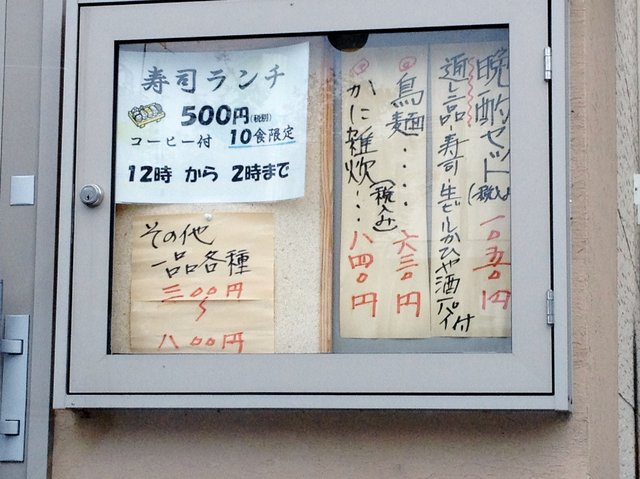 寿司ランチ
500円(税別)
コーヒー付 10食限定
12時 から 2時まで
その他
一品各種
三〇〇円
〜
八〇〇円
晩酌セット(税込)一〇五〇円
返し一品・寿司・生ビールかひや酒一パイ付
鳥麺・・・・六三〇円
かに雑炊(税込み)・・・八四〇円